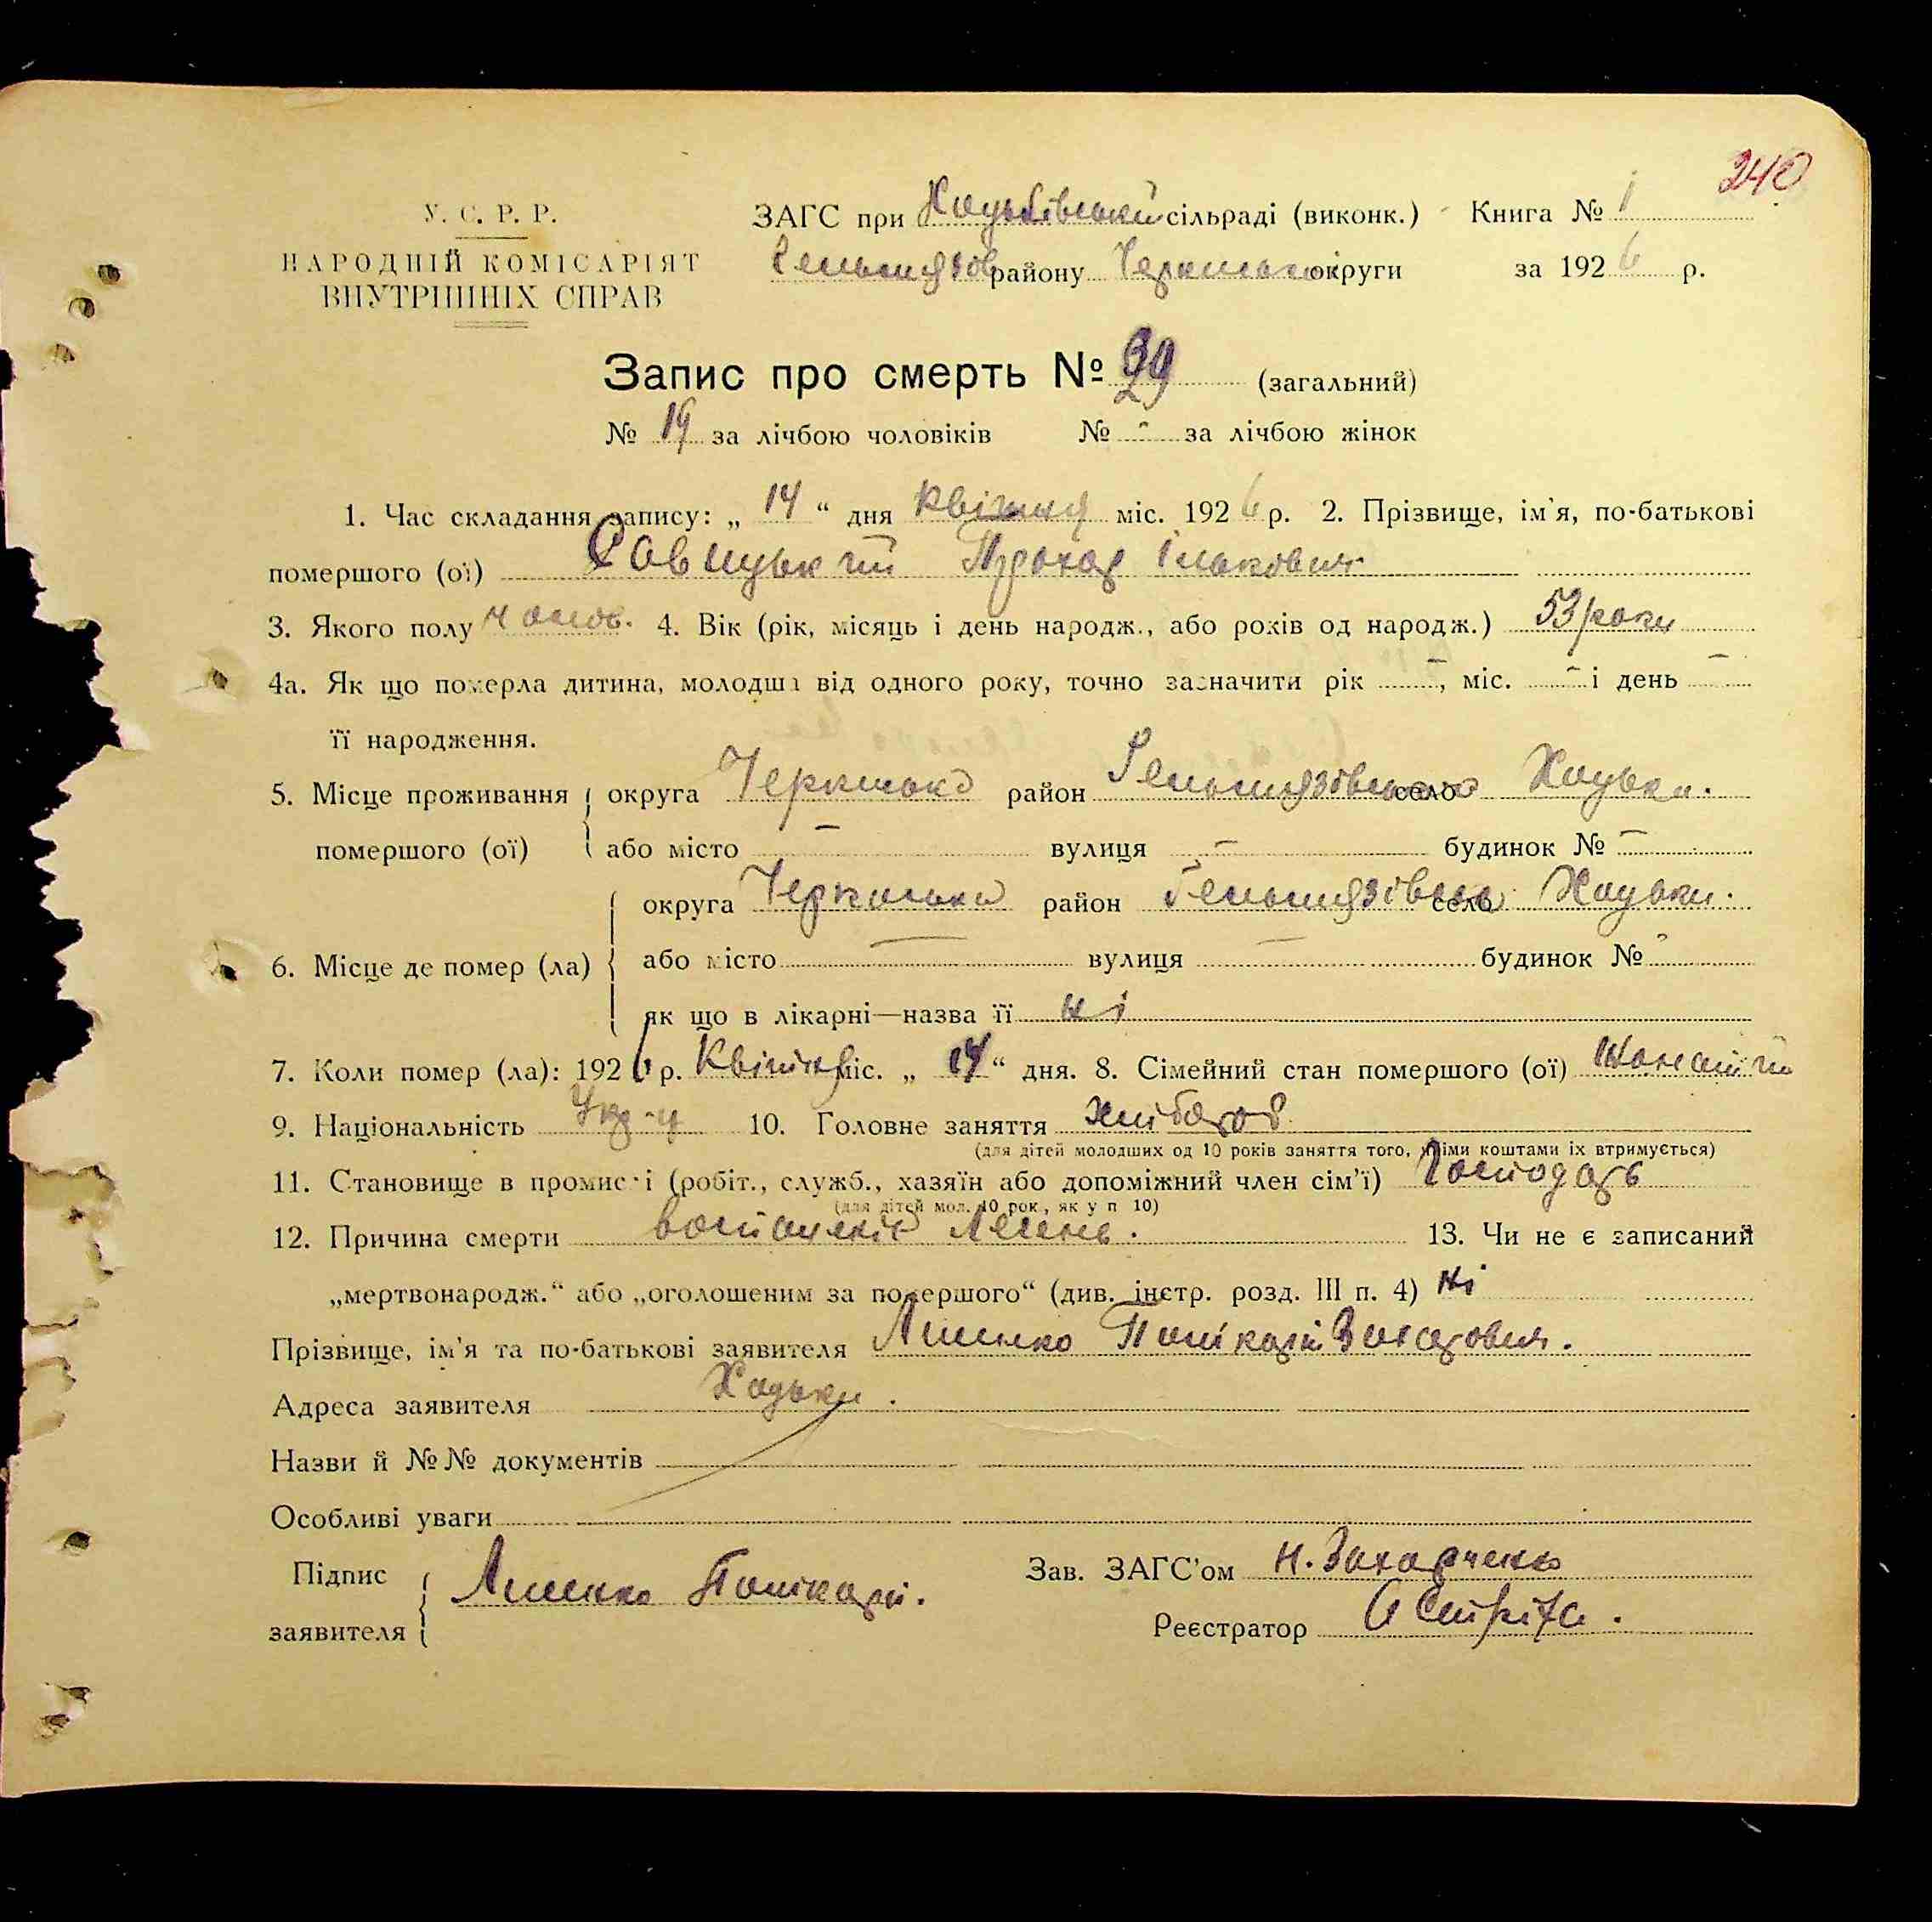 240
У. С. Р. Р.
НАРОДНІЙ КОМІСАРІЯТ
ВНУТРІШНІХ СПРАВ
ЗАГС при Хоцьківській сільраді (виконк.) Книга № 1
Гельмязів району Черкаської округи за 1926 р.
Запис про смерть № 39 (загальний)
№ 19 за лічбою чоловіків № - за лічбою жінок
1. Час складання запису: „ 14 “ дня Квітня міс. 1926 р. 2. Прізвище, ім'я, по-батькові
помершого (ої) Савицький Прохор Ількович
3. Якого полу чолов. 4. Вік (рік, місяць і день народж., або років од народж.) 53 роки
4а. Як що померла дитина, молодша від одного року, точно зазначити рік -, міс. - і день -
її народження.
5. Місце проживання округа Черкаська район Гельмязівський село Хоцьки.
помершого (ої) або місто - вулиця - будинок № -
округа Черкаська район Гельмязівськ село Хоцьки.
6. Місце де помер (ла) або місто - вулиця - будинок № -
як що в лікарні—назва її ні
7. Коли помер (ла): 1926 р. Квітня міс. „ 14 “ дня. 8. Сімейний стан помершого (ої) Жонатий
9. Національність Укр-ц 10. Головне заняття хлібороб
(для дітей молодших од 10 років заняття того, чиїми коштами їх втримується)
11. Становище в промислі (робіт., служб., хазяїн або допоміжний член сім'ї) Господарь
(для дітей мол. 10 рок, як у п 10)
12. Причина смерти воспаленія Легень. 13. Чи не є записаний
„мертвонародж.“ або „оголошеним за помершого“ (див. інстр. розд. III п. 4) Ні
Прізвище, ім'я та по-батькові заявителя Полікарп Захарович.
Адреса заявителя Хоцьки.
Назви й №№ документів
Особливі уваги
Підпис
заявителя Полікарп.
Зав. ЗАГС'ом Н. Захарченко
Реєстратор